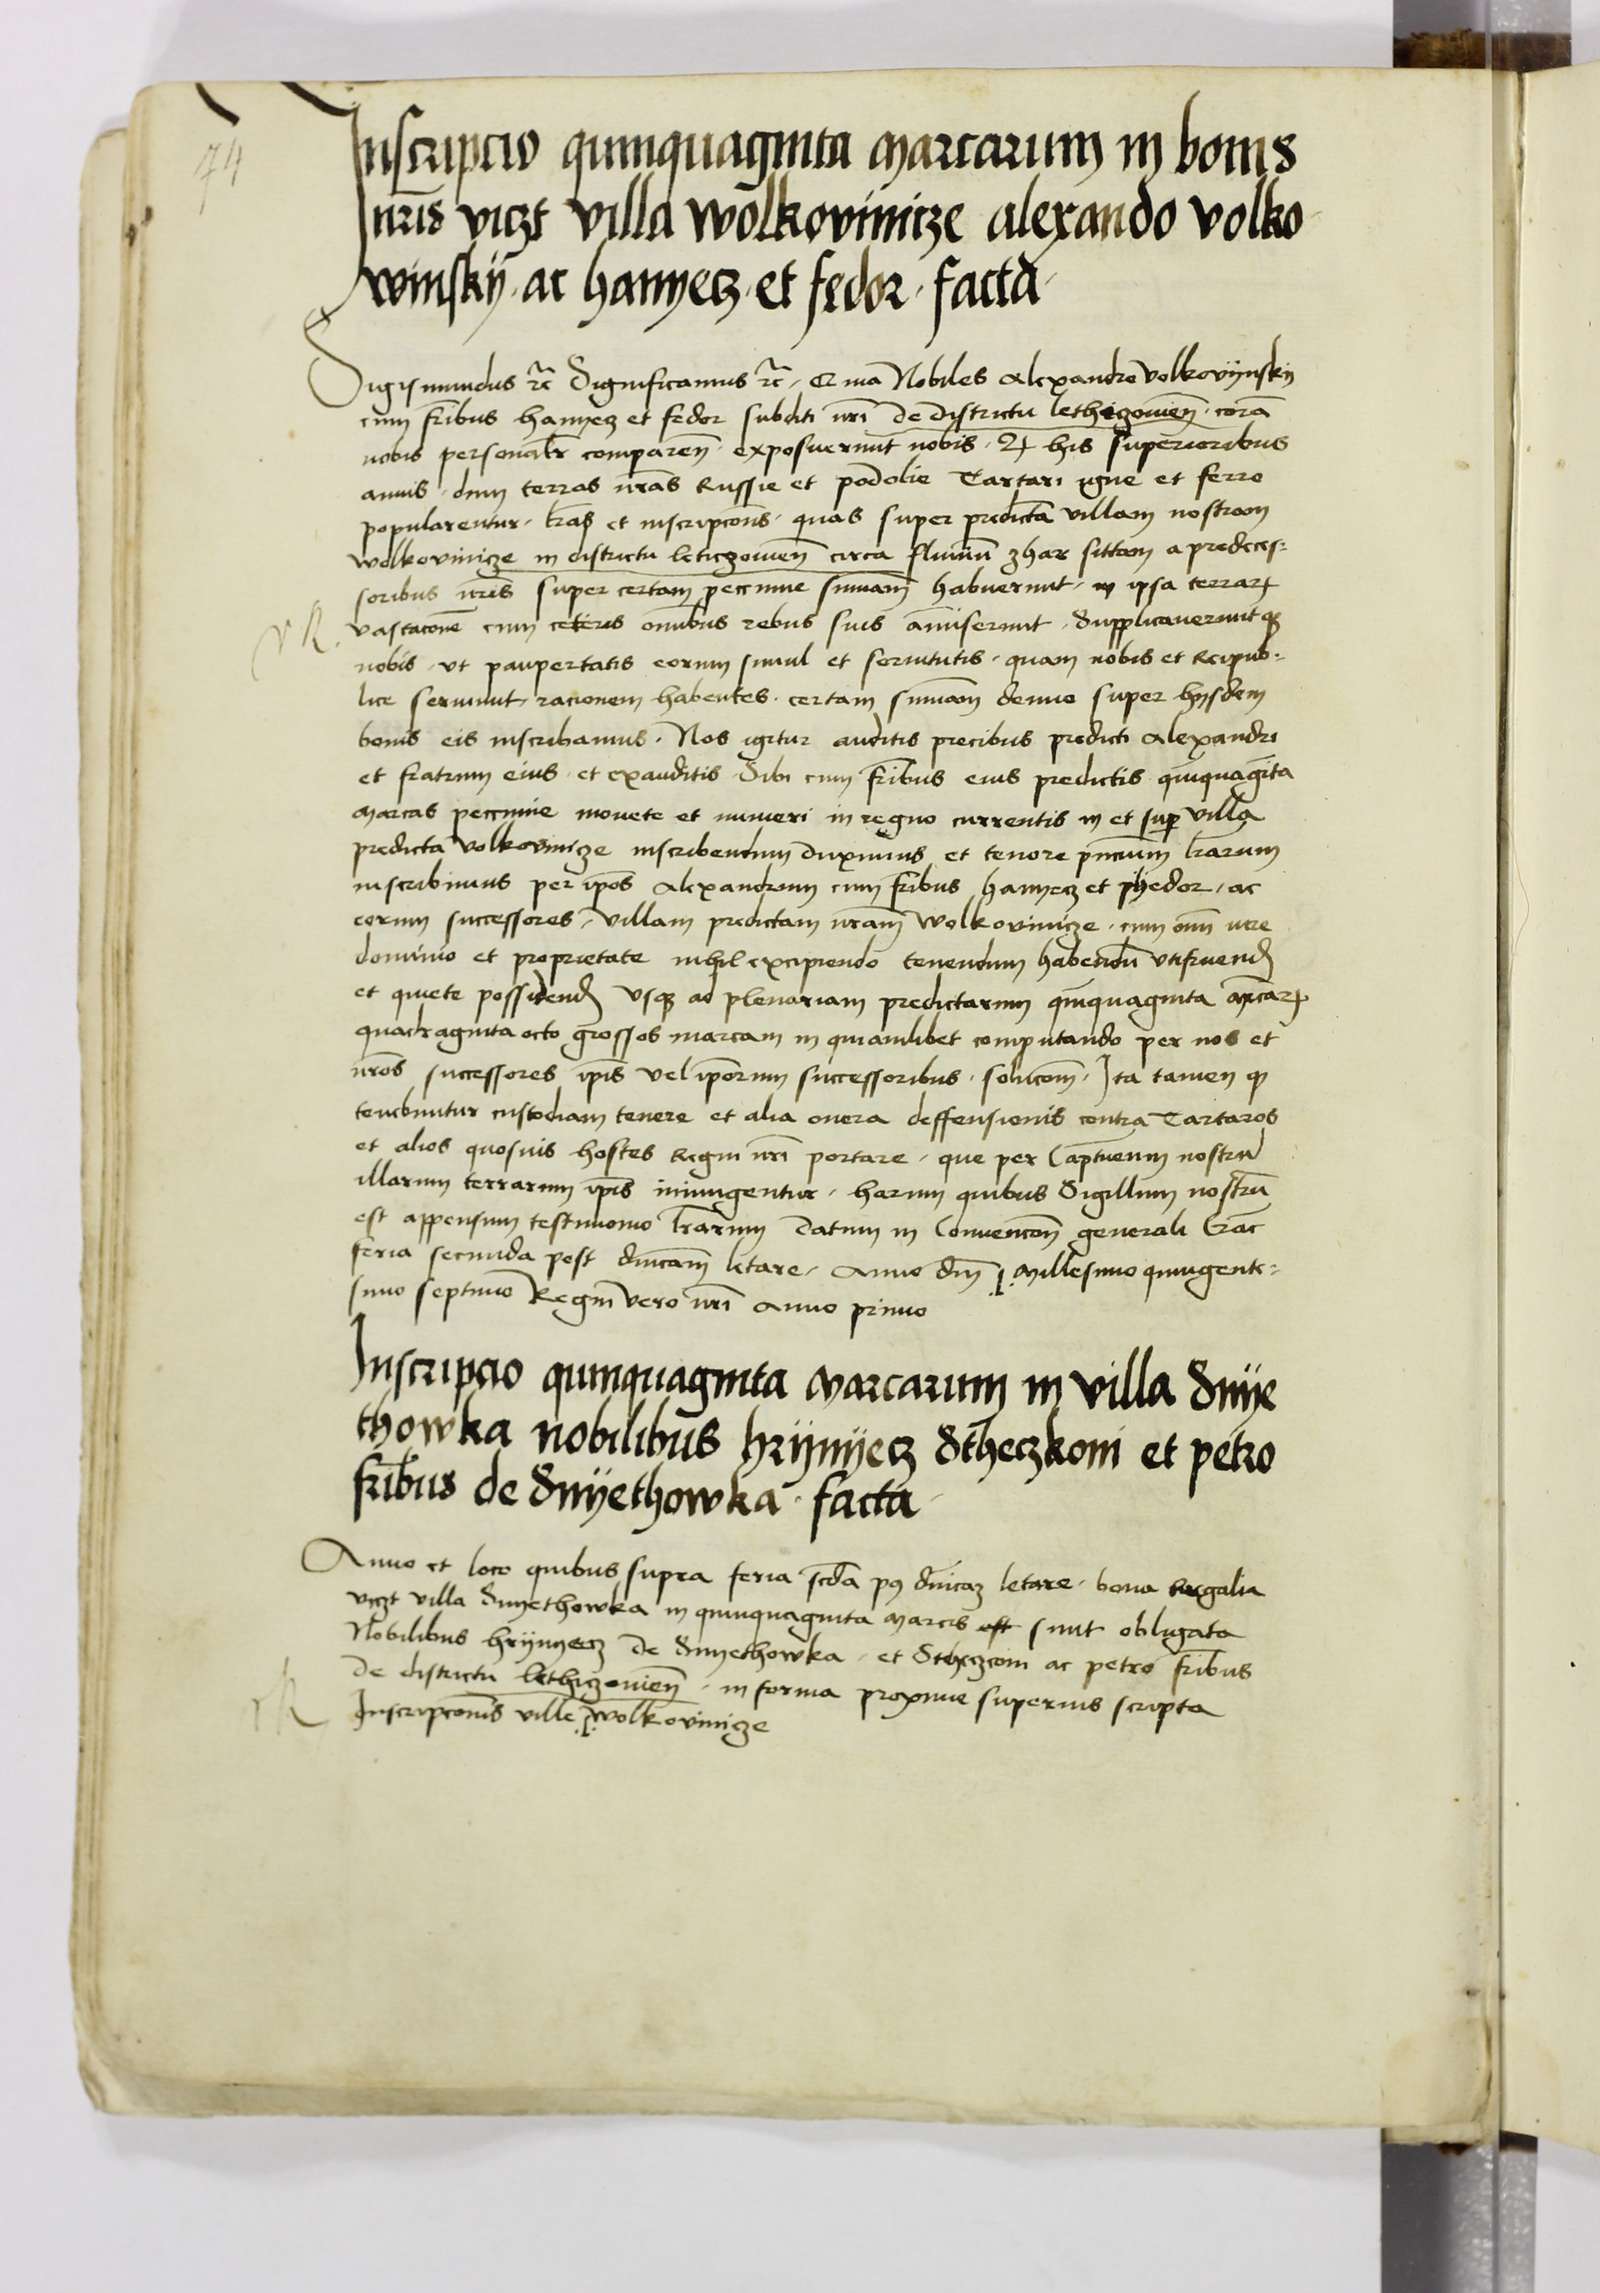 74
Inscripcio quinquaginta Marcarum in bonis
nr̃is viczt villa wolkovinicze alexando volko
winskÿ · ac hanyecz · et fedor · facta ·
Sigismundus rc̃ Significamus rc̃ · Q ma Nobiles Alexandro Volkovÿnskÿ
cum fr̃ibus hanyecz et fedor subditi nr̃i de districtu lethiczowieñ · corã
nobis personalr̃ compareñ · exposuerunt nobis · Q his superioribus
annis · dum terras nr̃as Russie et podolie Tartari igne et ferro
popularentur · lr̃as et inscripcões · quas super predictã villam nostram
wolkovinicze in districtu leticzowieñ circa fluuiũ zhar sittam a predeces=
soribus nr̃is super certam peccunie sum̃am habuerunt · in ipsa terrarꝝ
vastacione cum ceteris om̃ibus rebus suis amiserunt · Supplicaueruntqꝫ
VR.
nobis · vt paupertatis eorum simul et seruitutis · quam nobis et Reipub=
lice seruiunt · racionem habentes · certam sum̃am denuo super hÿsdem
bonis eis inscribamus · Nos igitur auditis precibus predicti Alexandri
et fratrum eius · et exauditis · Sibi cum fr̃ibus eius predictis quinquaginta
Marcas peccunie monete et numeri in regno currentis in et sup̃ villa
predicta Volkovinicze inscribendum duximus et tenore pñcium lr̃arum
inscribimus per ip̃os Alexandrum cum fr̃ibus hanyecz et phedor · ac
eorum successores · villam predictam nr̃am Wolkovinicze · cum om̃i iure
dominio et proprietate nihil excipiendo tenendum habendũ vtifruend̃
et quiete possidend̃ vsqꝫ ad plenariam predictarum quinquaginta mr̃carꝝ
quadraginta octo grossos marcam in quamlibet computando per nos et
nr̃os successores ip̃is vel ip̃orum successoribus · solucom̃ · Ita tamen qꝫ
tenebuntur custodiam tenere et alia onera deffensionis contra Tartaros
et alios quosuis hostes Regni nr̃i portare · que per Capitueum nostru
illarum terrarum ip̃is iniungentur · harum quibus Sigillum nostrũ
est appensum testimonio lr̃arum Datum in Conuencõe generali Crac̃
feria secunda post dñicam letare · Anno dñi Millesimo quingente=
simo septimo Regni vero nr̃i Anno primo
Inscripcio quinquaginta Marcarum in villa Snÿe
thowka nobilibus hrÿnÿecz Stheczkoni et petro
fr̃ibus de Snÿethowka · facta ·
Anno et loco quibus supra feria scd̃a pꝯ dñicaꝫ letare · bona Regalia
viczt villa Snyethowka in quinquaginta Marcis est sunt obligata
Nobilibus hrÿnyecz de Snyethowka · et Stheczconi ac petro fr̃ibus
de districtu lethiczowieñ · in forma proxime superius scripta
VR
Inscripcõnis ville wolkovinicze